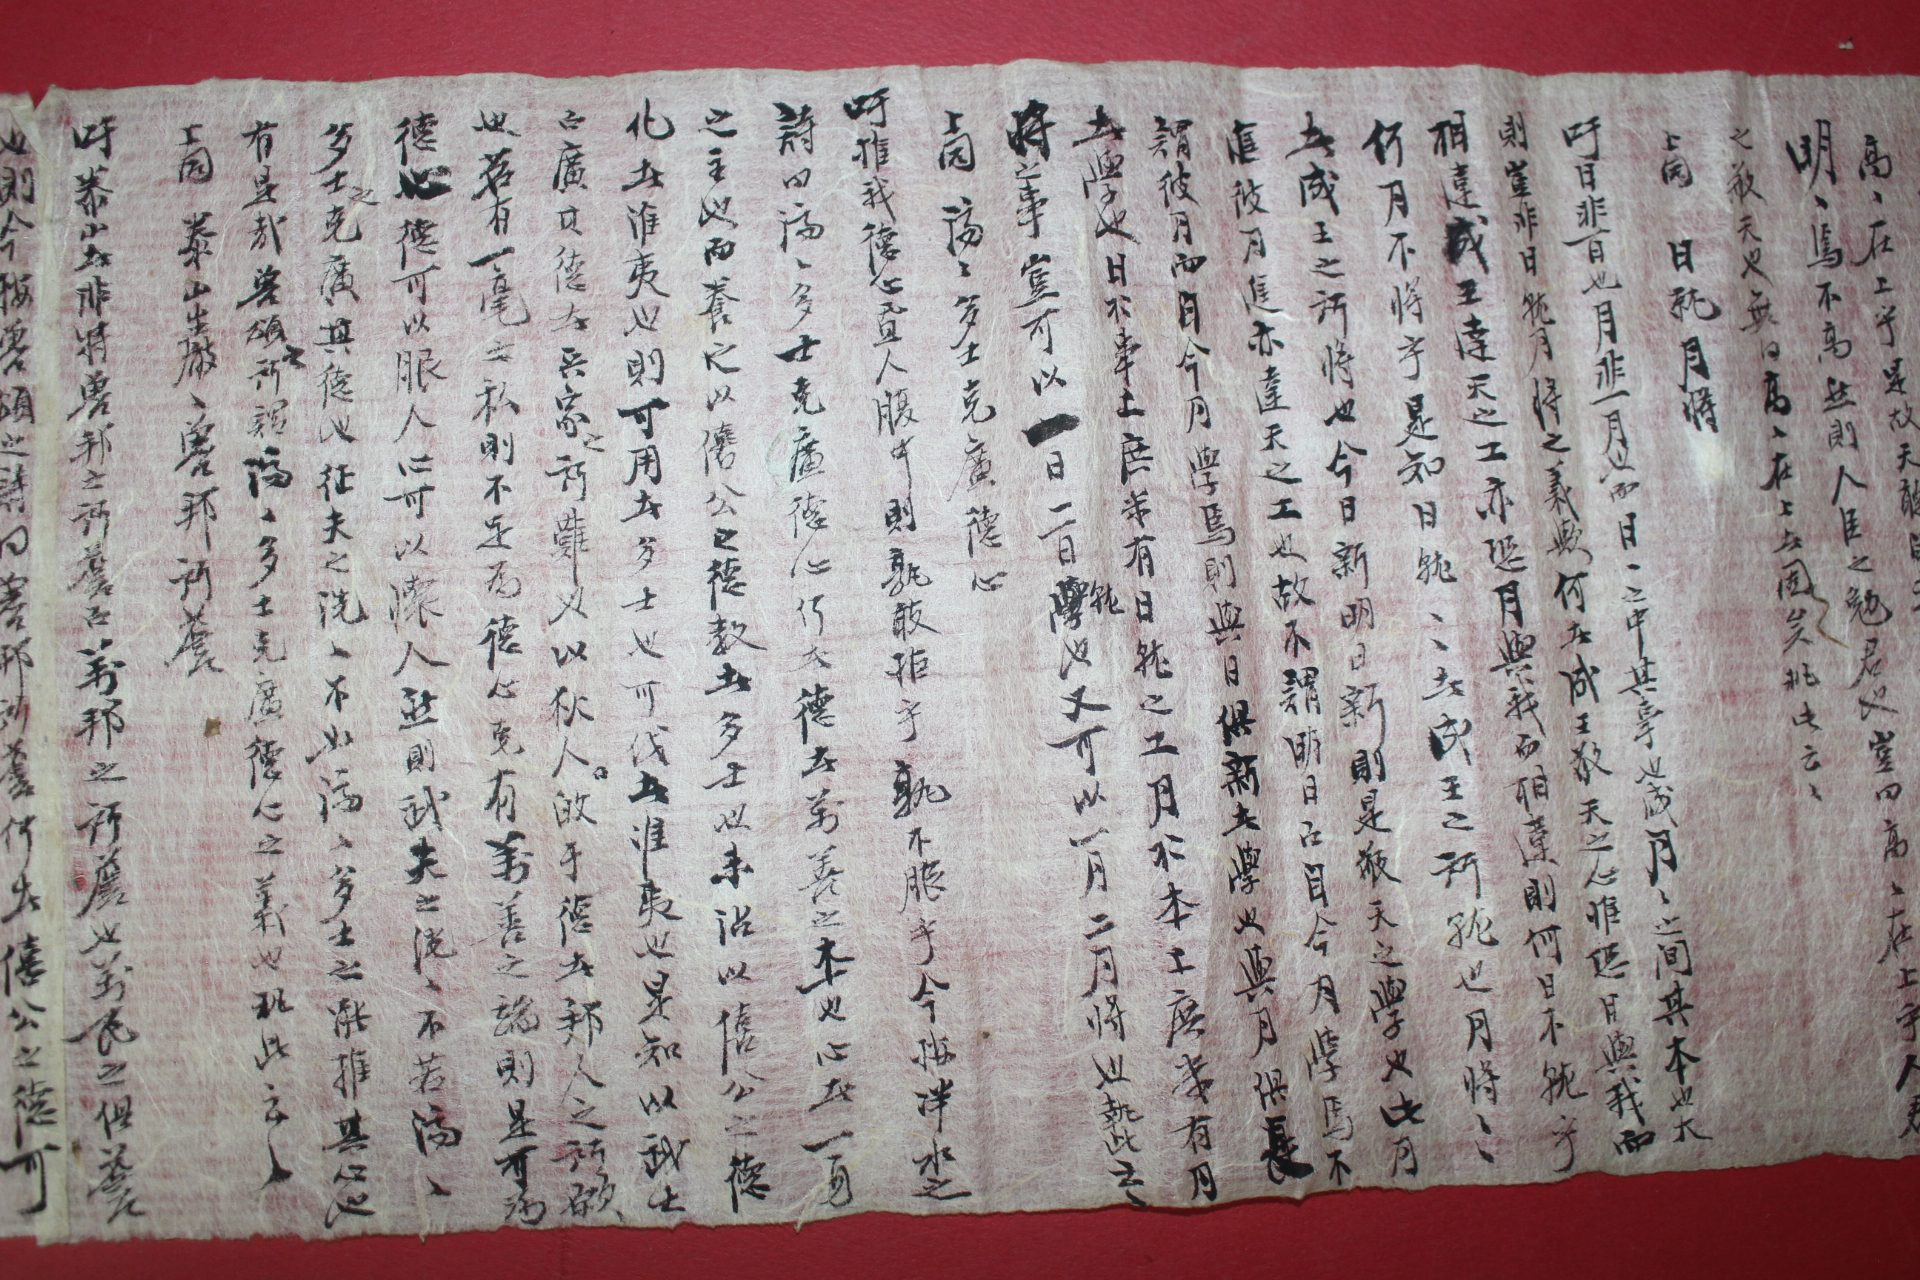 高〻在上乎是故天聽
明〻焉不高然則人臣之勉君也豈曰高〻在上乎人君
之敬天也無曰高〻在上者固矣執此云〻
上同 日就月將
吁日非一日也月非一月也而日〻之中其事也歲月〻之間其本也大
則豈非日就月將之義歟何者成王敬天之心惟恐日與我而
相違成王達天之工亦恐月與我而相違則何日不就乎
何月不將乎是知日就〻者成王之所就也月將〻
者成王之所將也今日新明日新則是敬天之學也此月
進彼月進亦達天之工也故不謂明日而自今月學焉不
謂彼月而自今月學焉則與日俱新者學也與月俱長
者學也日於本工庶幾有日就之工月於本工庶幾有月
將之事豈可以一日二日就學也又可以一月二月將也執此云〻
上同 濟〻多士克廣德心
吁推我德心置人腹中則孰敢拒乎孰不服乎今按泮水之
詩曰濟〻多士克廣德心何者德者萬善之本也心者一身
之主也而養之以僖公之德教者多士也未沾以僖公之德
化者淮夷也則可用者多士也可伐者淮夷也是知以我士
而廣其德者兵家之所難也以狄人的于德者邦人之所欲
也若有一毫之私則不足爲德心克有萬善之端則是可爲
德心德可以服人心可以懷人然則武夫之洸〻不若濟〻
多士之克廣其德也征夫之洸〻不如濟〻多士之能推其心也
有是哉魯頌之所謂濟〻多士克廣德心之義也執此云〻
上同 泰山巖〻魯邦所詹
吁泰山者非特魯邦之所詹而萬邦之所詹也萬民之俱詹
也則今按魯頌之詩曰魯邦所詹何者僖公之德可